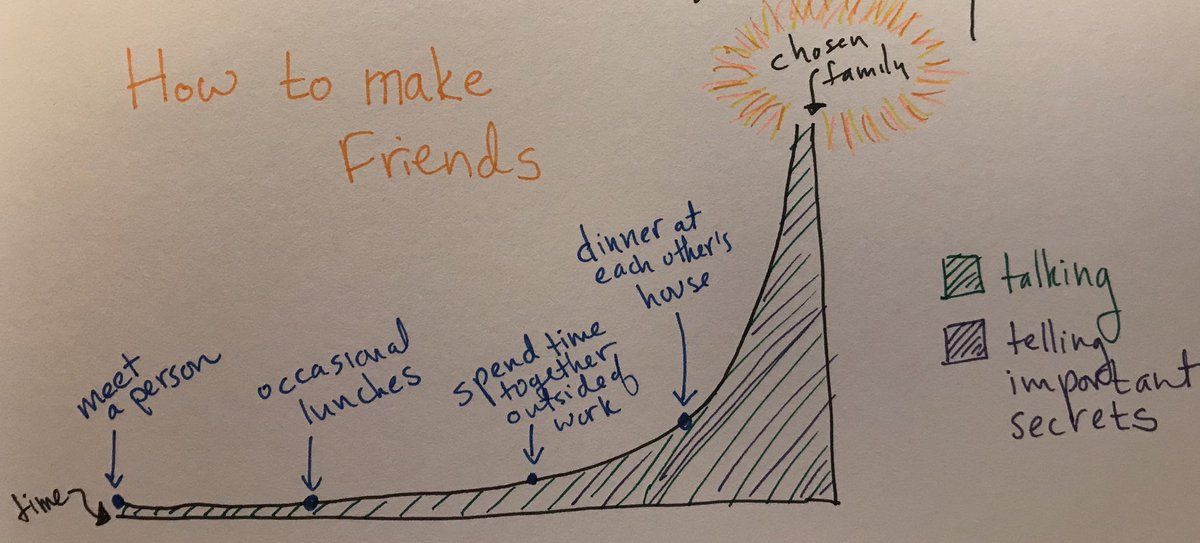 How to make
Friends
chosen
family
dinner at
each other's
house
spend time
together
outside of
work
occasional
lunches
meet
a person
time
talking
telling
important
secrets